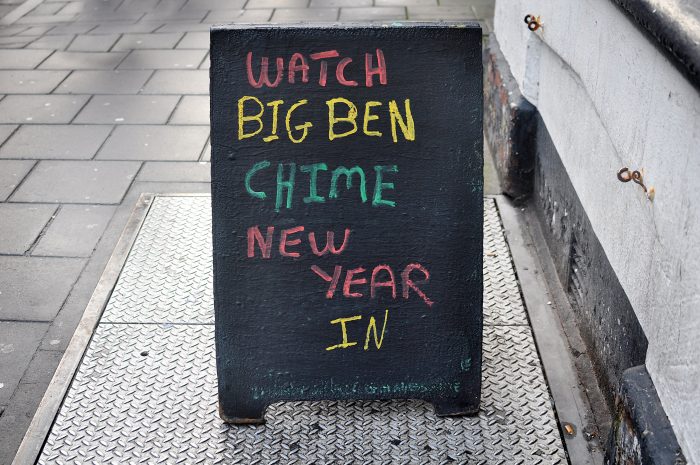 WATCH
BIG BEN
CHIME
NEW
YEAR
IN